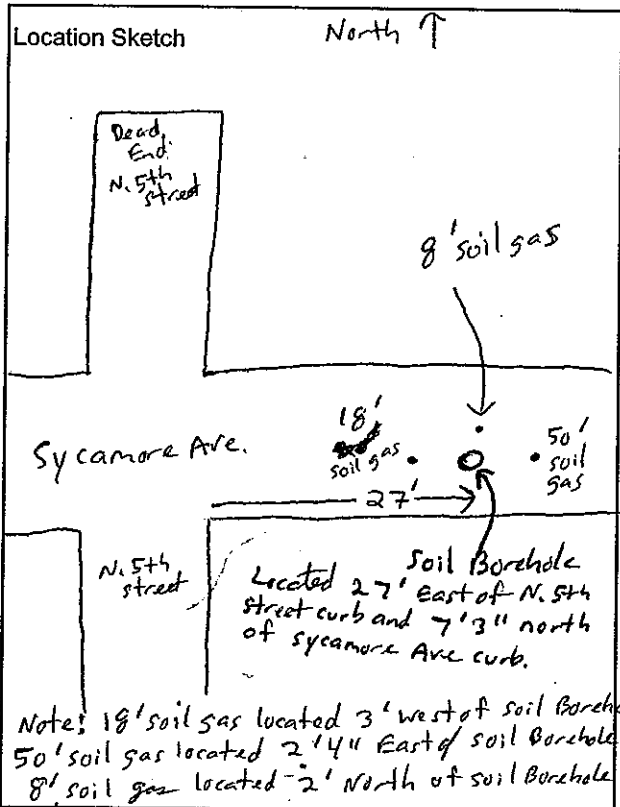 Location Sketch
North ↑
Dead
End
N. 5th
street
8' soil gas
Sycamore Ave.
18'
soil gas
50'
soil
gas
27'
N. 5th
street
Soil Borehole
Located 27' East of N. 5th
street curb and 7'3" north
of sycamore Ave curb.
Note: 18' soil gas located 3' west of soil Boreh
50' soil gas located 2'4" East of soil Borehole
8' soil gas located 2' North of soil Borehole